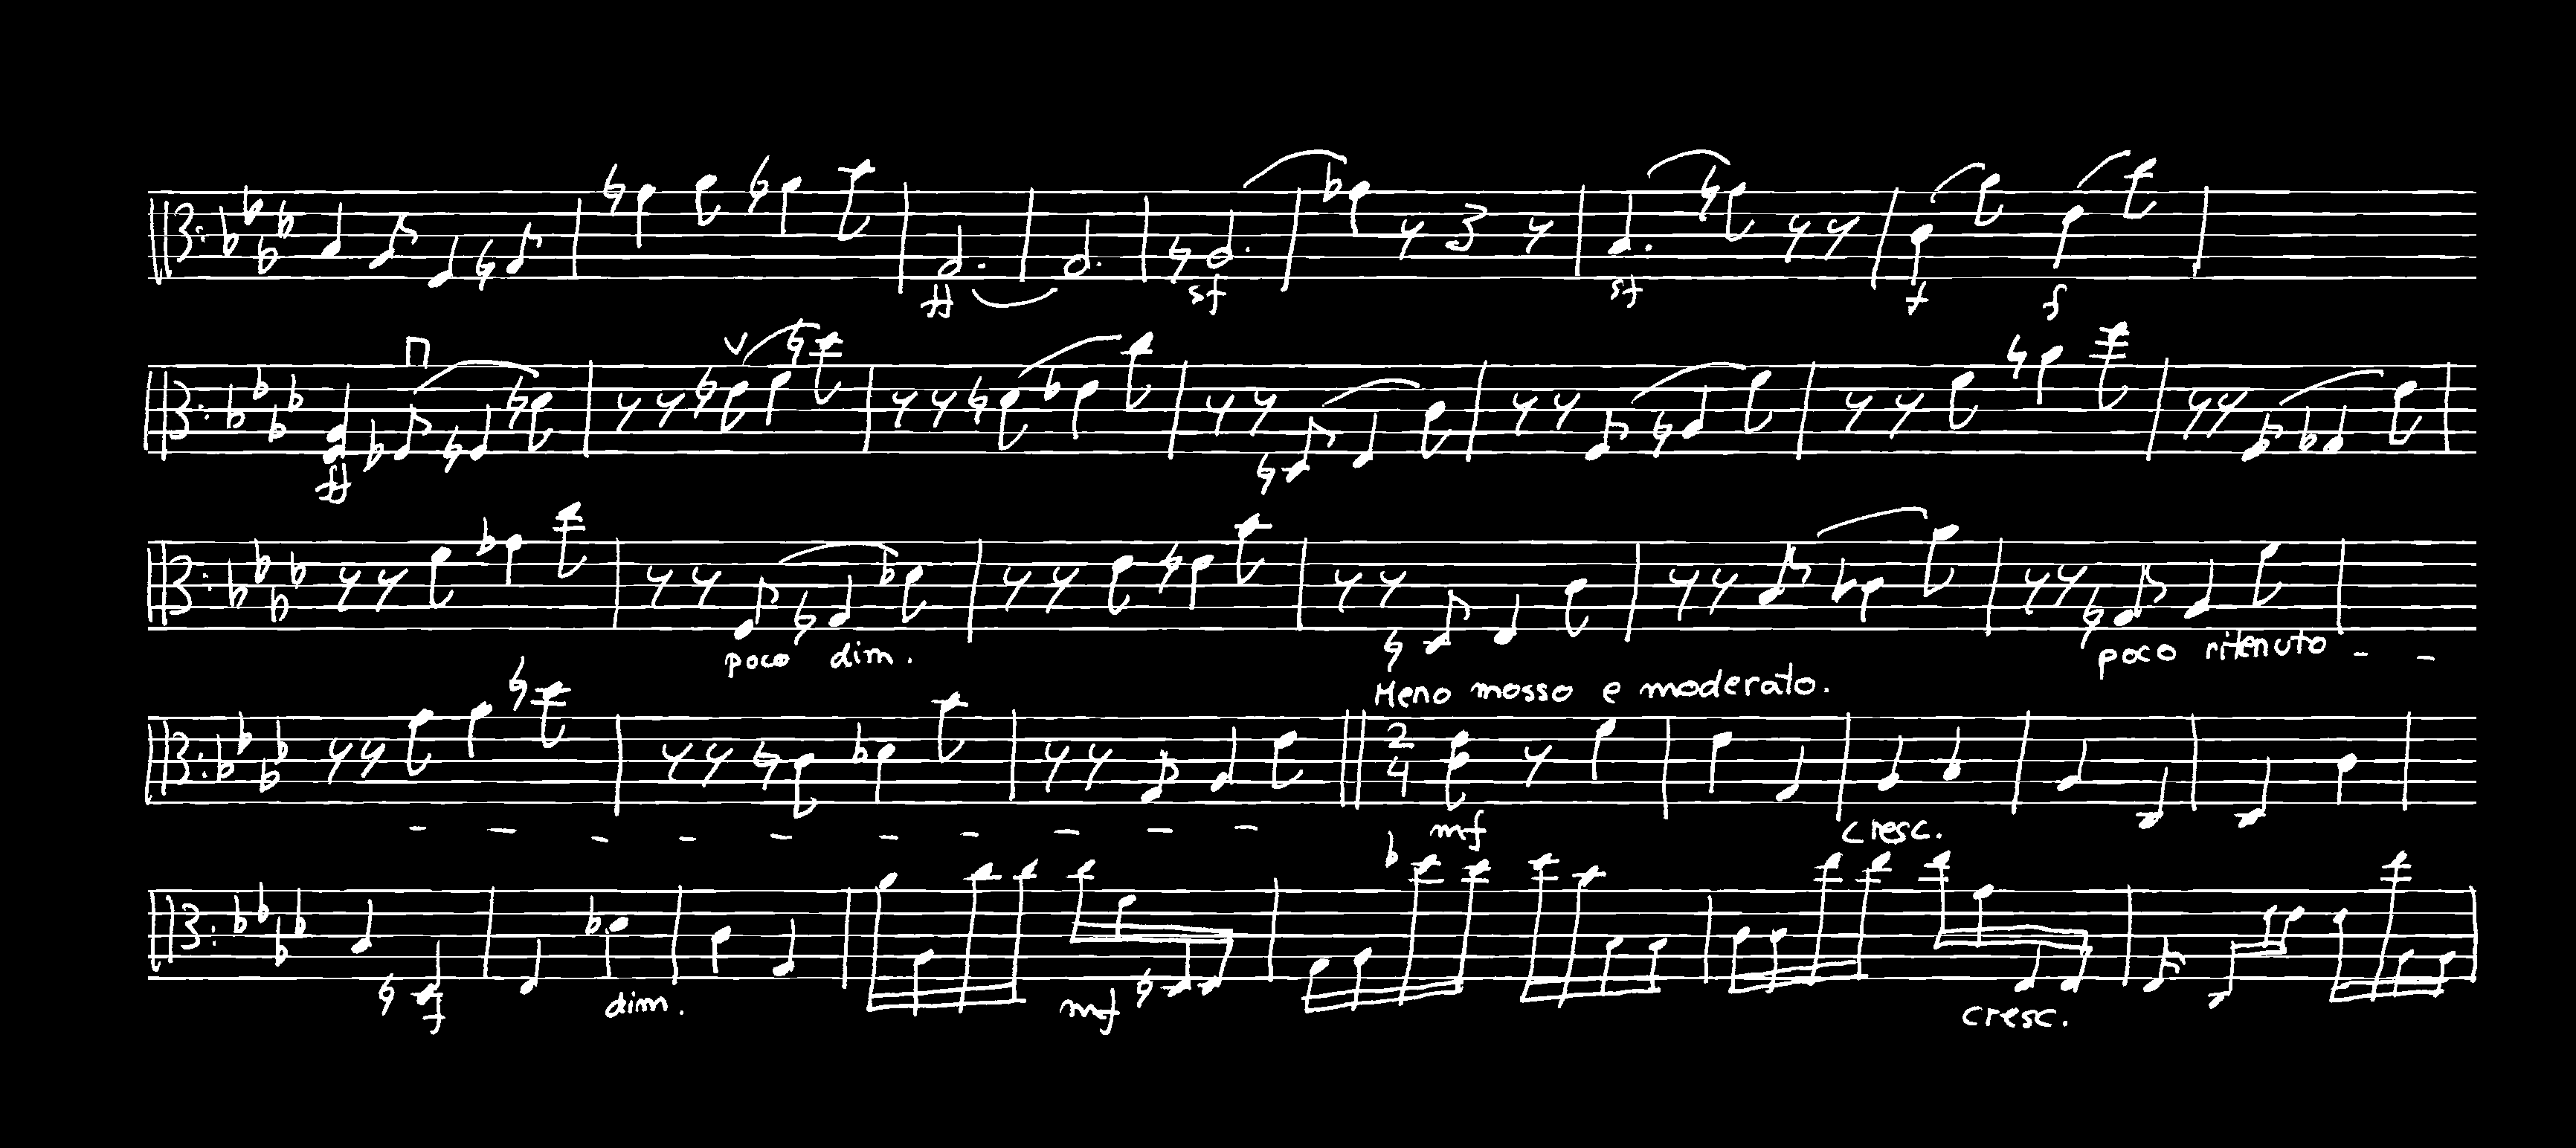 ff sf sf f f
ff
poco dim. poco ritenuto - -
Meno mosso e moderato.
2
4
- - - - - - - - - - mf cresc.
f dim. mf cresc.